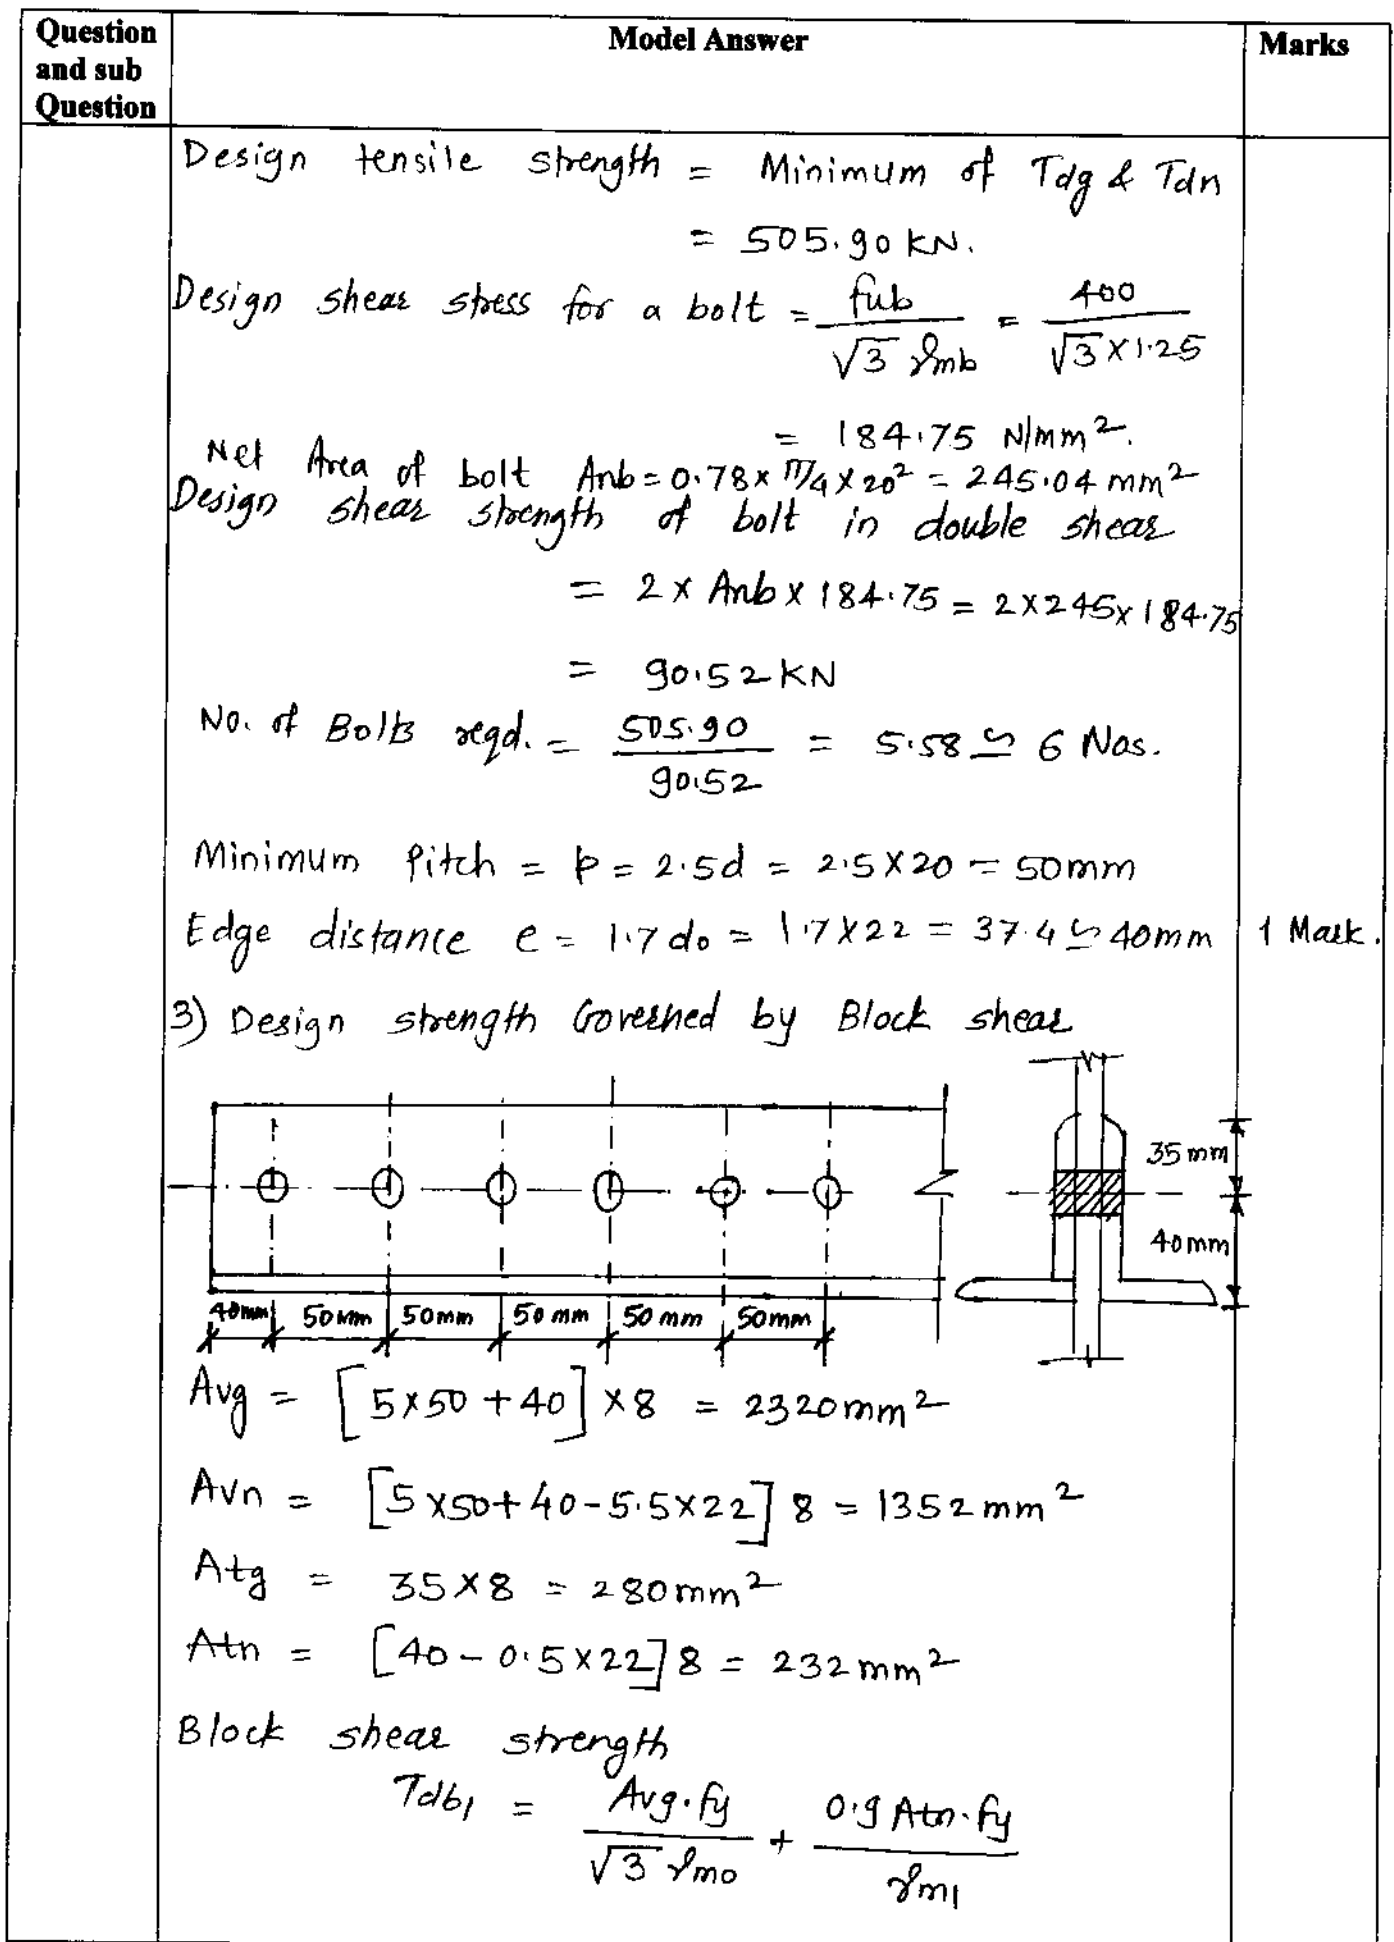 Question and sub Question
Model Answer
Marks
Design tensile strength = Minimum of Tdg & Tdn
= 505.90 KN.
Design shear stress for a bolt = fub / √3 γmb = 400 / √3 × 1.25
= 184.75 N/mm².
Net Area of bolt Anb = 0.78 × π/4 × 20² = 245.04 mm²
Design shear strength of bolt in double shear
= 2 × Anb × 184.75 = 2 × 245 × 184.75
= 90.52 KN
No. of Bolts reqd. = 505.90 / 90.52 = 5.58 ≃ 6 Nos.
Minimum Pitch = p = 2.5d = 2.5 × 20 = 50mm
Edge distance e = 1.7 do = 1.7 × 22 = 37.4 ≃ 40mm
1 Mark.
3) Design strength Governed by Block shear
35 mm
40 mm
40mm 50 mm 50 mm 50 mm 50 mm 50mm
Avg = [5×50 + 40] × 8 = 2320 mm²
Avn = [5×50 + 40 - 5.5×22] 8 = 1352 mm²
Atg = 35 × 8 = 280 mm²
Atn = [40 - 0.5×22] 8 = 232 mm²
Block shear strength
Tdb1 = Avg.fy / √3 γmo + 0.9 Atn.fy / γm1